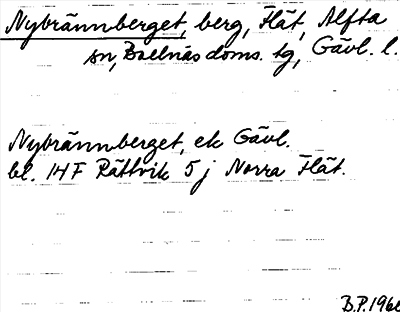 Nybrännberget, berg, Flät, Alfta
sn, Bollnäs doms. tg, Gävl. l.
Nybrännberget, ek Gävl.
bl. 14F Rättvik 5 j Norra Flät.
B.P. 196